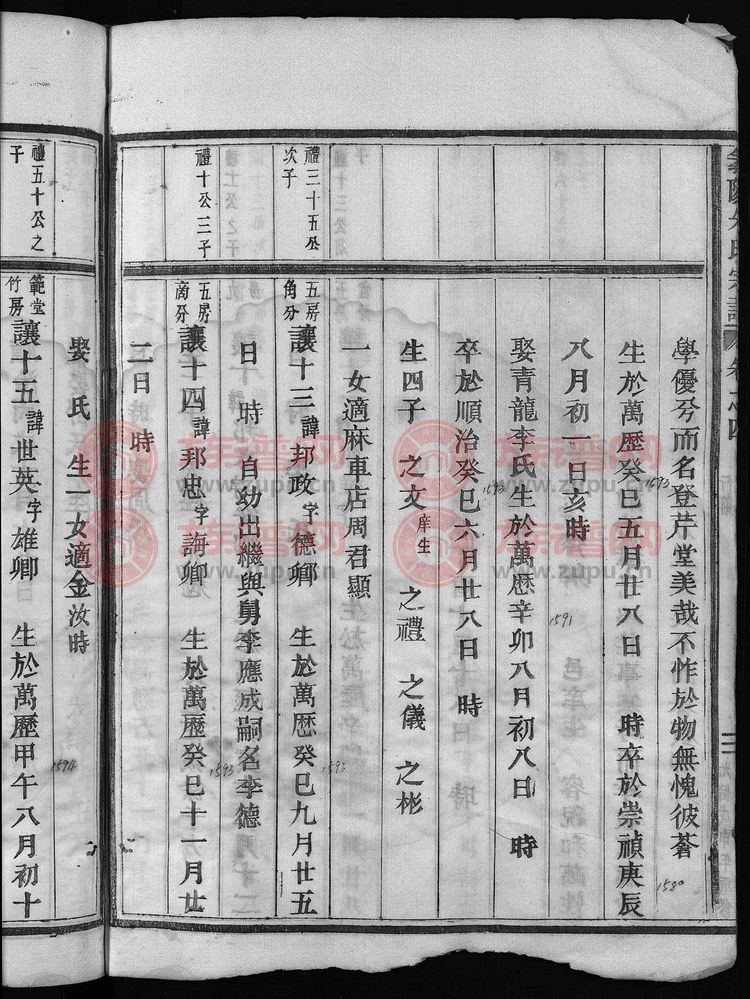 學優兮而名登芹堂美哉不怍於物無愧彼蒼
生於萬歷癸巳五月廿八日　時卒於崇禎庚辰
1593
1580
八月初一日亥時
娶青龍李氏生於萬歷辛卯八月初八日　時
1591
卒於順治癸巳六月廿八日　時
1593
生四子　之文庠生　之禮　之儀　之彬
一女適麻車店周君顯
禮三十五公次子
五房角分讓十三諱邦政字德卿　生於萬歷癸巳九月廿五
1593
日　時　自幼出繼與舅李應成嗣名李德
禮十公三子
五房商分讓十四諱邦忠字誨卿　生於萬歷癸巳十一月廿
1593
二日　時
娶　氏　生一女適金汝時
1594
禮五十公之子
範堂竹房讓十五諱世英字雄卿　生於萬歷甲午八月初十
氏宗譜
卷之四
族谱网
www.zupu.cn
族谱网
www.zupu.cn
族谱网
www.zupu.cn
族谱网
www.zupu.cn